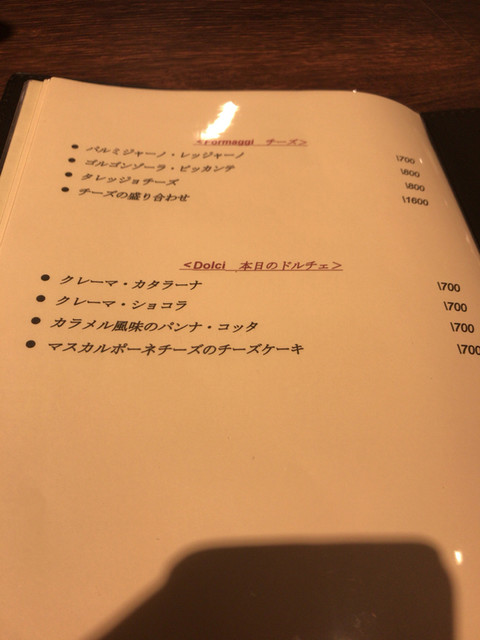 <Formaggi　チーズ>
● パルミジャーノ・レッジャーノ \700
● ゴルゴンゾーラ・ピッカンテ \800
● タレッジョチーズ \800
● チーズの盛り合わせ \1600
<Dolci　本日のドルチェ>
● クレーマ・カタラーナ \700
● クレーマ・ショコラ \700
● カラメル風味のパンナ・コッタ \700
● マスカルポーネチーズのチーズケーキ \700